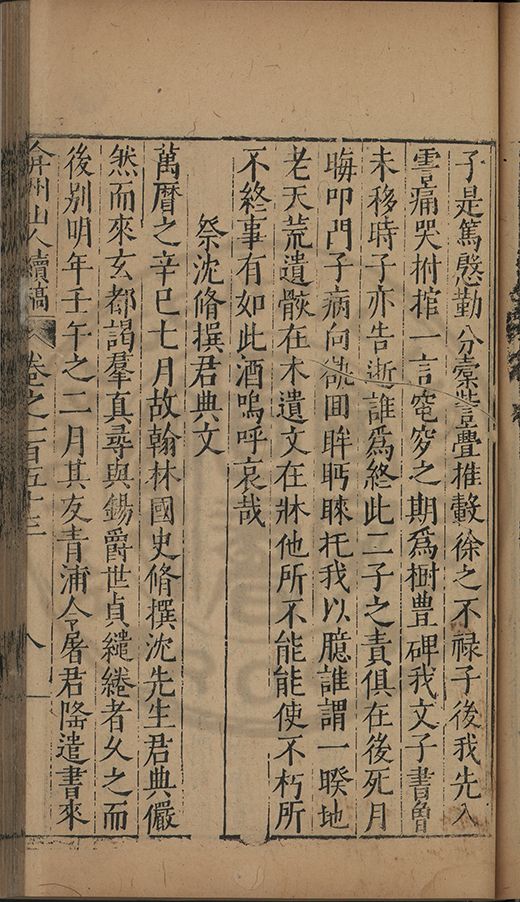 子是篤慇勤分橐訾疊推轂徐之不祿子後我先入
雪痛哭拊棺一言窀穸之期為樹豊碑我文子書魯
未移時子亦告逝誰為終此二子之責俱在後死月
晦叩門子病向欲囬眸眄睞托我以臆誰謂一暌地
老天荒遺骸在木遺文在牀他所不能能使不朽所
不終事有如此酒嗚呼哀哉
祭沈脩撰君典文
萬曆之辛巳七月故翰林國史脩撰沈先生君典儼
然而來玄都謁羣真尋與錫爵世貞繾綣者久之而
後别明年壬午之二月其友青浦令屠君隆遣書來
弇州山人續稿 卷之一百五十三 八